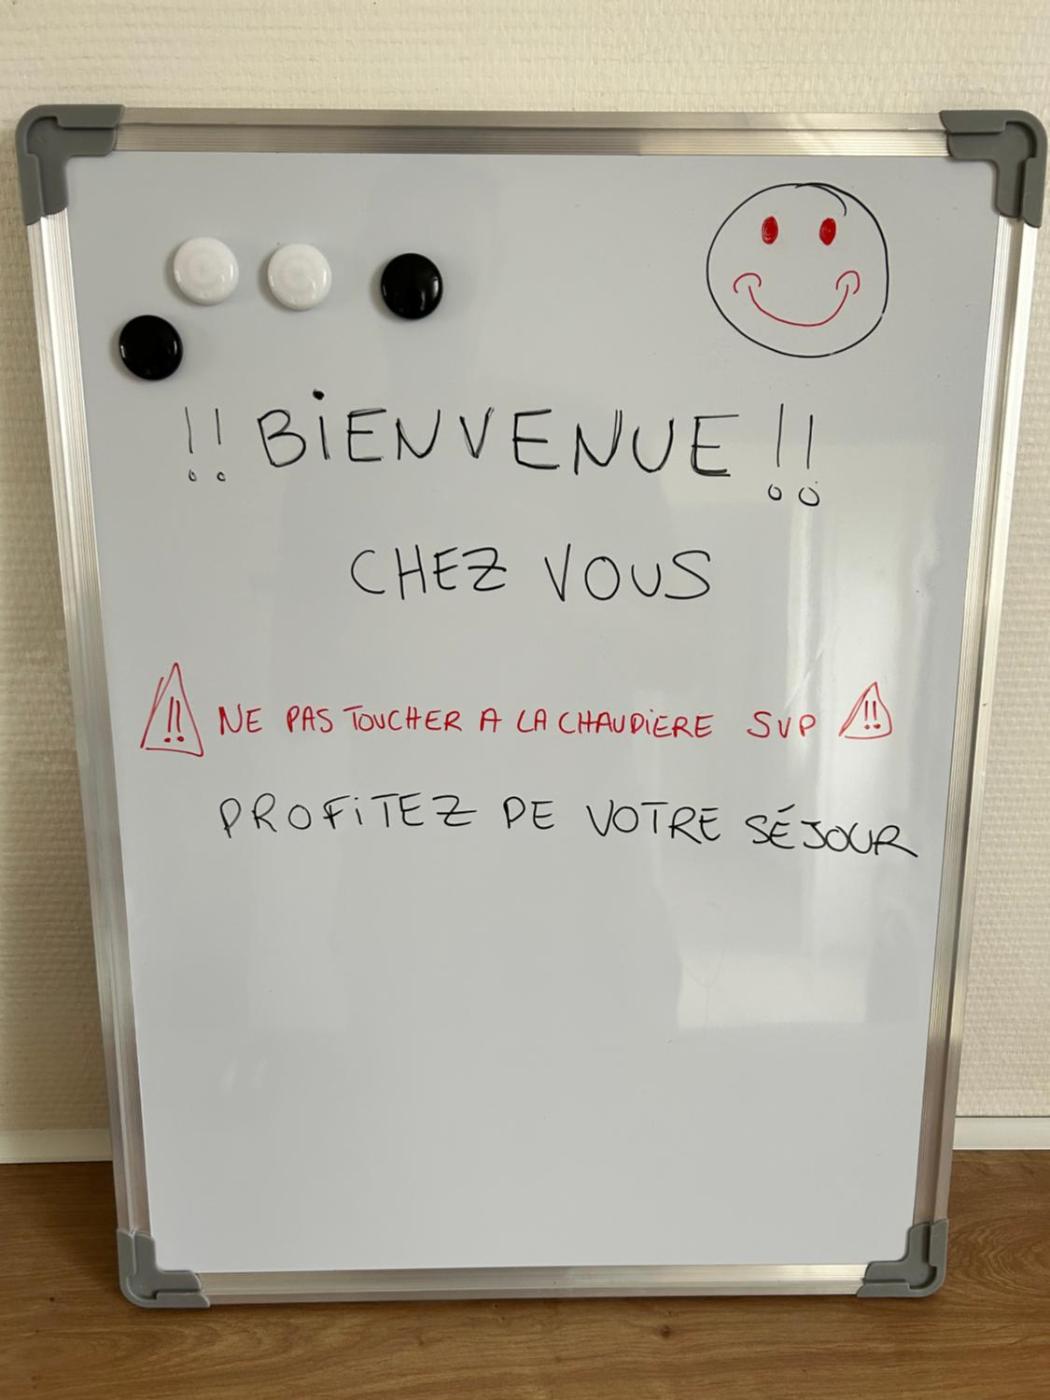 !! BIENVENUE !!
CHEZ VOUS
!! NE PAS TOUCHER A LA CHAUDIERE SVP !!
PROFITEZ DE VOTRE SÉJOUR